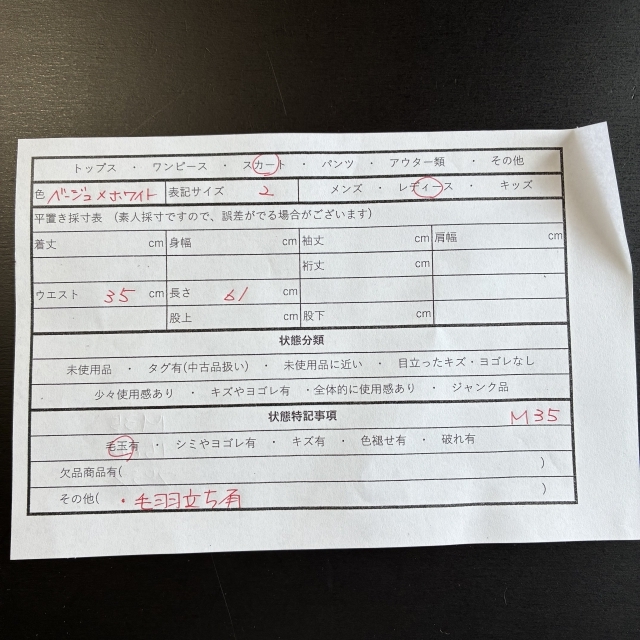 トップス ・ ワンピース ・ スカート ・ パンツ ・ アウター類 ・ その他
色 ベージュ×ホワイト 表記サイズ 2 メンズ ・ レディース ・ キッズ
平置き採寸表 （素人採寸ですので、誤差がでる場合がございます）
着丈 cm 身幅 cm 袖丈 cm 肩幅 cm
裄丈 cm
ウエスト 35 cm 長さ 61 cm
股上 cm 股下 cm
状態分類
未使用品 ・ タグ有(中古品扱い) ・ 未使用品に近い ・ 目立ったキズ・ヨゴレなし
少々使用感あり ・ キズやヨゴレ有 ・全体的に使用感あり ・ ジャンク品
状態特記事項 M35
毛玉有 ・ シミやヨゴレ有 ・ キズ有 ・ 色褪せ有 ・ 破れ有
欠品商品有( )
その他( ・毛羽立ち有 )